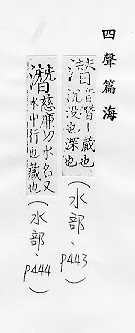 四聲篇海
音潛丨藏也
沉没也深也
(水部、p443)
慈 切水名又
水中行也藏也
(水部、p444)